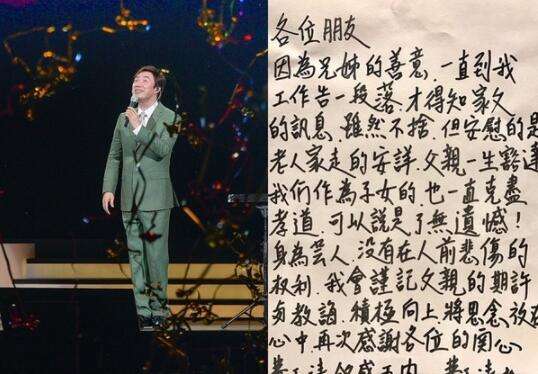 各位朋友
因為兄姊的善意, 一直到我
工作告一段落, 才得知家父
的訊息, 雖然不捨, 但安慰的是
老人家走的安詳, 父親一生豁達
我們作為子女的, 也一直克盡
孝道, 可以說是了無遺憾!
身為芸人, 沒有在人前悲傷的
權利, 我會謹記父親的期許
教誨, 積極向上將思念放在
心中, 再次感謝各位的関心